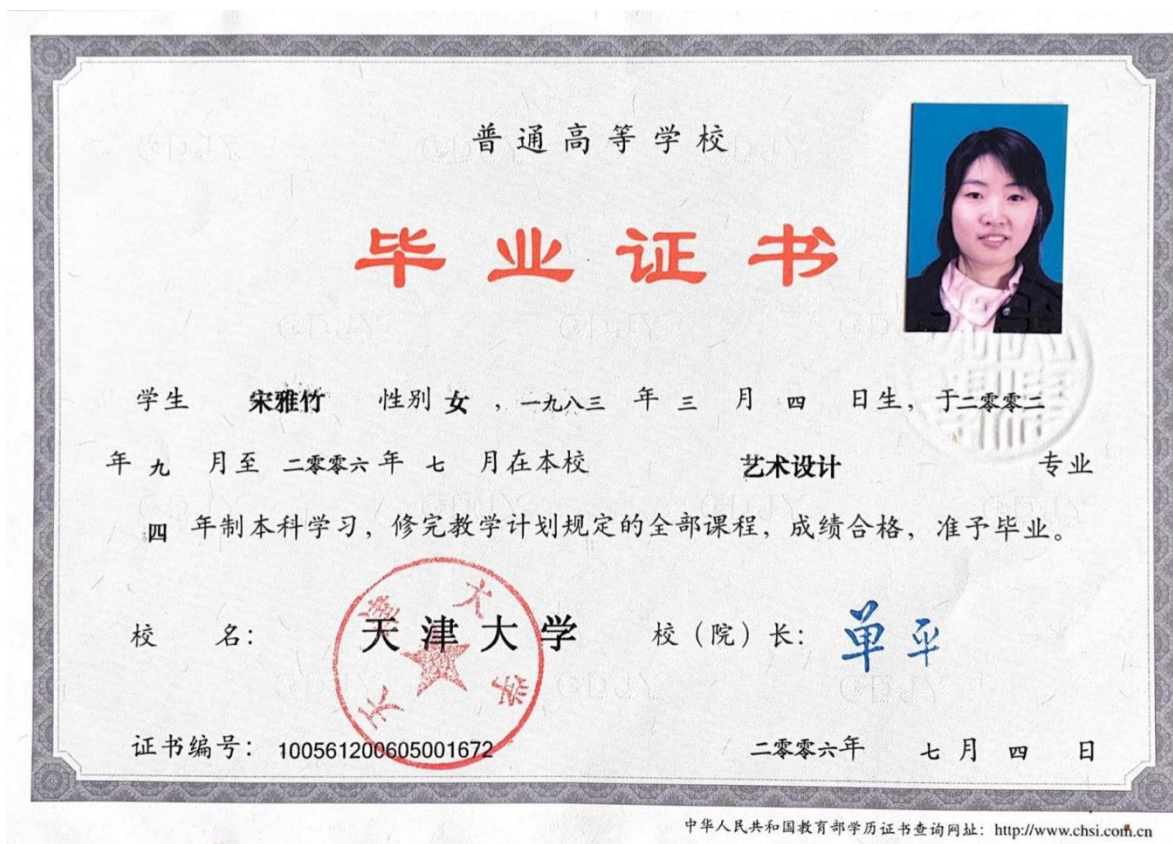 普通高等学校
毕业证书
学生 宋雅竹 性别 女 ，一九八三 年 三 月 四 日生，于二零零二
年 九 月至 二零零六 年 七 月在本校 艺术设计 专业
四 年制本科学习，修完教学计划规定的全部课程，成绩合格，准予毕业。
校 名： 天津大学 校（院）长： 单平
天津大学
证书编号： 100561200605001672 二零零六年 七 月 四 日
中华人民共和国教育部学历证书查询网址：http://www.chsi.com.cn